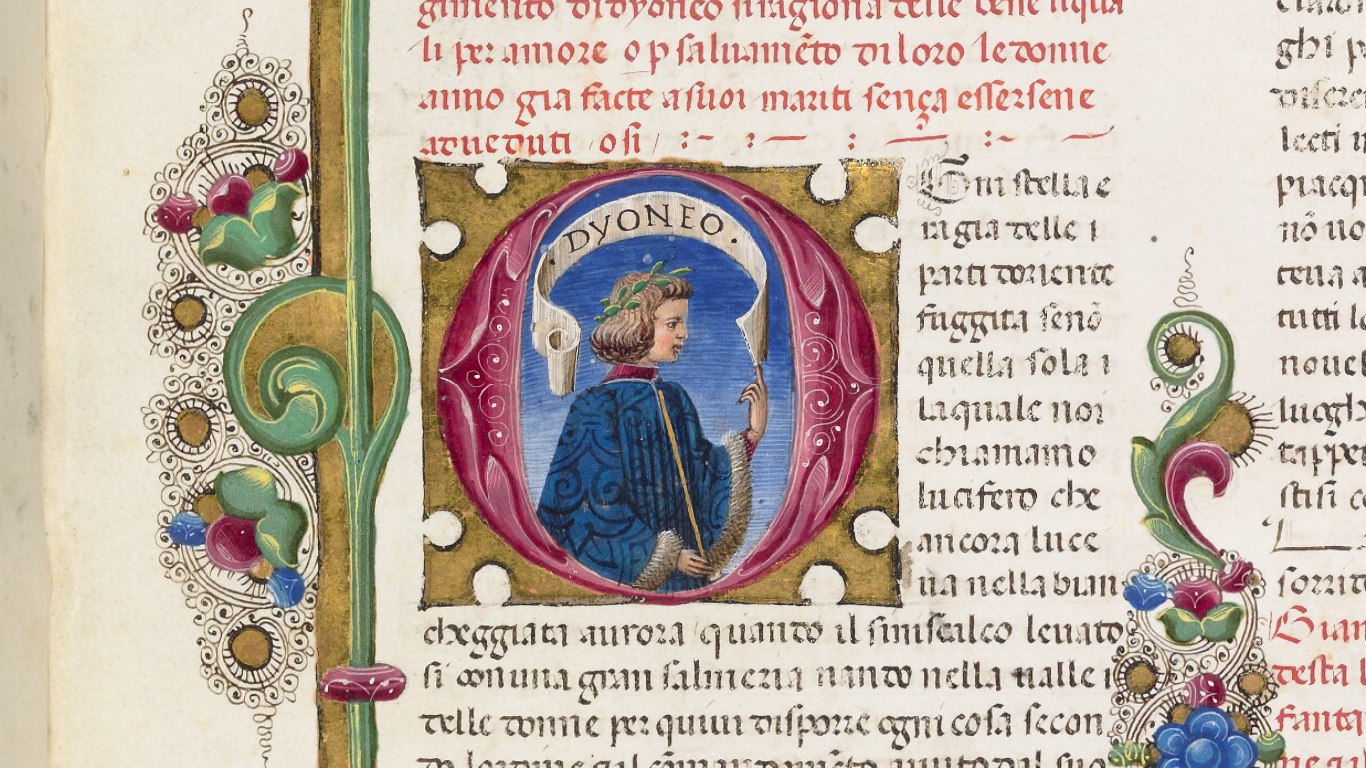 gimento di dyoneo si ragiona delle beffe liqua
li per amore o p saluamēto di loro le donne
anno gia facte a suoi mariti sença essersene
adueduti o si
DYONEO.
Gni stella e
ra gia delle
parti doriente
fuggita senō
quella sola
laquale noi
chiamamo
lucifero che
ancora luce
ua nella bian
cheggiata aurora quando il siniscalco leuato
si con una gran salmeria nando nella ualle
delle donne per quiui disporre ogni cosa secon
ghi
lecti
piacq
nō uo
teua a
tutti
nouel
luogh
tappe
stisi
sorrid
Gian
testa
fanta